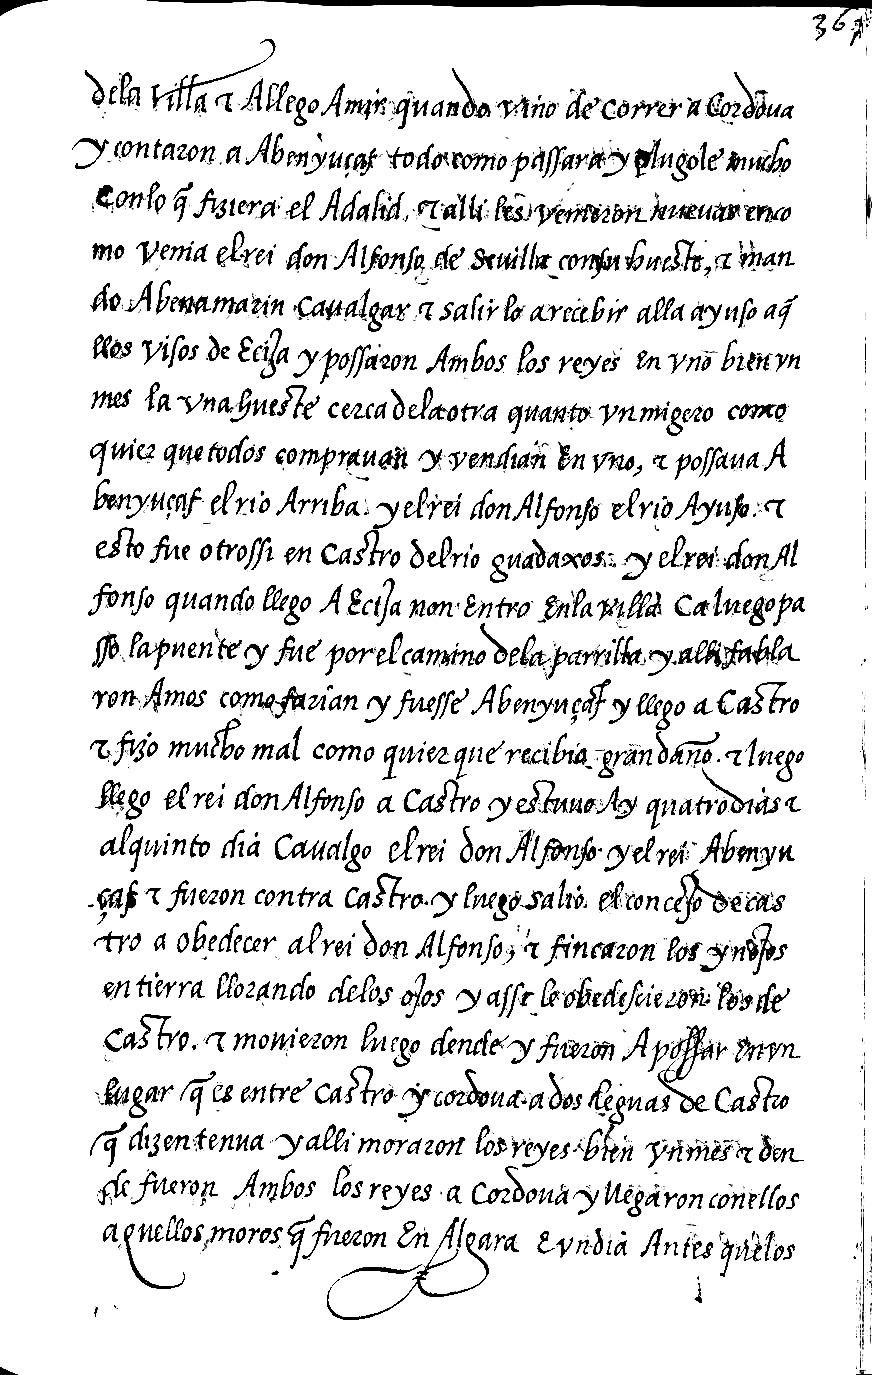 367
dela villa τ Allego Amir quando vino de correr a Cordova
y contaron a Abenyuçaf todo como passara y plugole mucho
Conlo q̃ fiziera el Adalid, τ alli les venieron nuevas en co
mo venia el rei don Alfonso de Sevilla con su hueste, τ man
do Abenamarin Cavalgar τ salir lo a recebir alla ayuso aq̃
llos visos de Ecija y possaron Ambos los reyes en vno bien vn
mes la vna hueste cerca dela otra quanto vn migero como
quier que todos compravan y vendian En vno, τ possava A
benyuçaf el rio Arriba. y el rei don Alfonso el rio Ayuso. τ
esto fue otrossi en Castro del rio guadaxos. y el rei don Al
fonso quando llego A Ecija non Entro Enla villa Ca luego pa
sso la puente y fue por el camino dela parrilla y alli fabla
ron Amos como farian y fuesse Abenyuçaf y llego a Castro
τ fizo mucho mal como quier que recibio gran daño. τ luego
llego el rei don Alfonso a Castro y estuvo Ay quatro dias τ
al quinto dia Cavalgo el rei don Alfonso y el rei Abenyu
çaf τ fueron contra Castro. y luego salio el concejo de cas
tro a obedecer al rei don Alfonso, τ fincaron los ynojos
en tierra llorando delos ojos y assi le obedescieron los de
Castro. τ movieron luego dende y fueron A possar En vn
lugar q̃ es entre Castro y cordova a dos leguas de Castro
q̃ dizen tenua y alli moraron los reyes bien vn mes τ den
de fueron Ambos los reyes a Cordova y llegaron con ellos
aquellos moros q̃ fueron En Algara E vn dia Antes que los